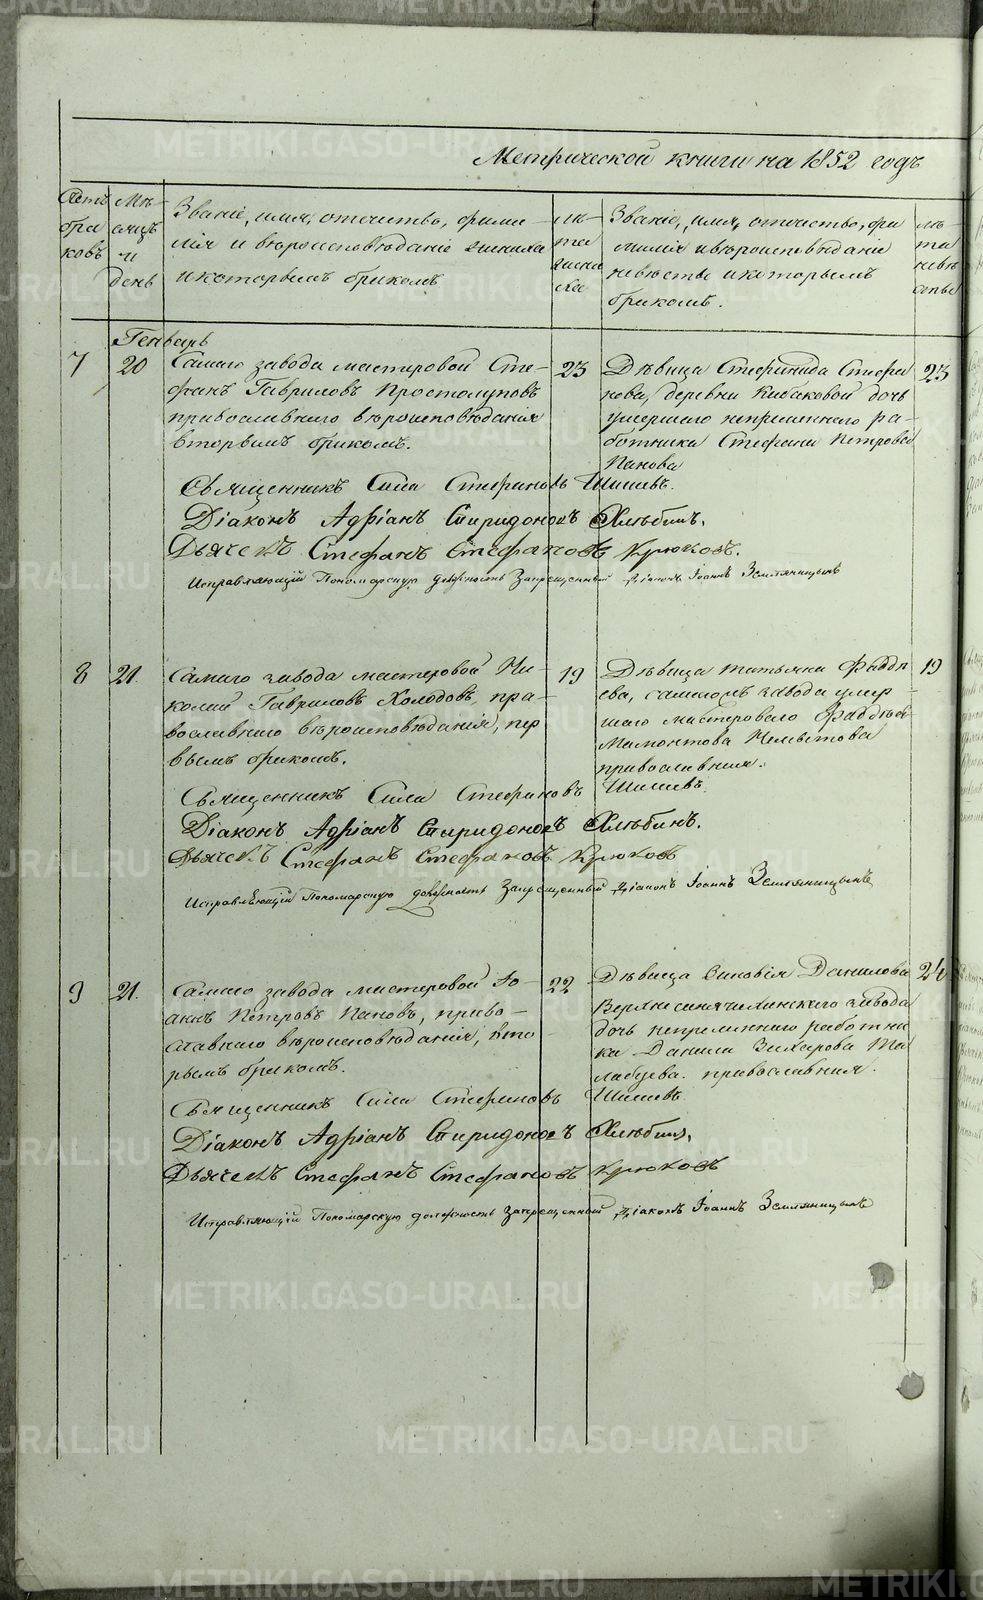 METRIKI.GASO-URAL.RU
Метрической книги на 1852 годъ
Счетъ браковъ
Мѣсяцъ и день
Званіе, имя, отчество, фамилія и вѣроисповѣданіе жениха и которымъ бракомъ
лѣта жениха
Званіе, имя, отчество, фамилія и вѣроисповѣданіе невѣсты и которымъ бракомъ.
лѣта невѣсты
Генварь
7
20
Самаго завода мастеровой Сте-
фанъ Гавриловъ Простолуповъ
православнаго вѣроисповѣданія
вторымъ бракомъ.
23
Дѣвица Стефанида Стефа
нова, деревни Кабаковой дочь
умершаго непремѣннаго ра-
ботника Стефана Петрова
Панова
23
Священникъ Сила Стефановъ Шишевъ.
Діаконъ Адріанъ Спиридоновъ Хлѣбинъ.
Дьячекъ Стефанъ Стефановъ Крюковъ.
Исправляющій Пономарскую должность Запрещенный Діаконъ Іоаннъ Земляницынъ
8
21.
Самаго завода мастеровой Ни-
колай Гавриловъ Холодовъ, пра-
вославнаго вѣроисповѣданія, пер
вымъ бракомъ.
19
Дѣвица Татьяна Фаддѣ
ева, самагожъ завода умер
шаго мастероваго Фаддѣя
Мамонтова
православная.
19
Священникъ Сила Стефановъ Шишевъ.
Діаконъ Адріанъ Спиридоновъ Хлѣбинъ.
Дьячекъ Стефанъ Стефановъ Крюковъ
Исправляющій Пономарскую должность Запрещенный Діаконъ Іоаннъ Земляницынъ
9
21.
Самаго завода мастеровой Іо-
аннъ Петровъ Пановъ, право-
славнаго вѣроисповѣданія, вто
рымъ бракомъ.
22
Дѣвица Зиновія Данилова
Верхнесинячихинскаго завода
дочь непремѣннаго работни
ка Данила Захарова
православная.
24
Священникъ Сила Стефановъ Шишевъ
Діаконъ Адріанъ Спиридоновъ Хлѣбинъ.
Дьячекъ Стефанъ Стефановъ Крюковъ
Исправляющій Пономарскую должность Запрещенный Діаконъ Іоаннъ Земляницынъ